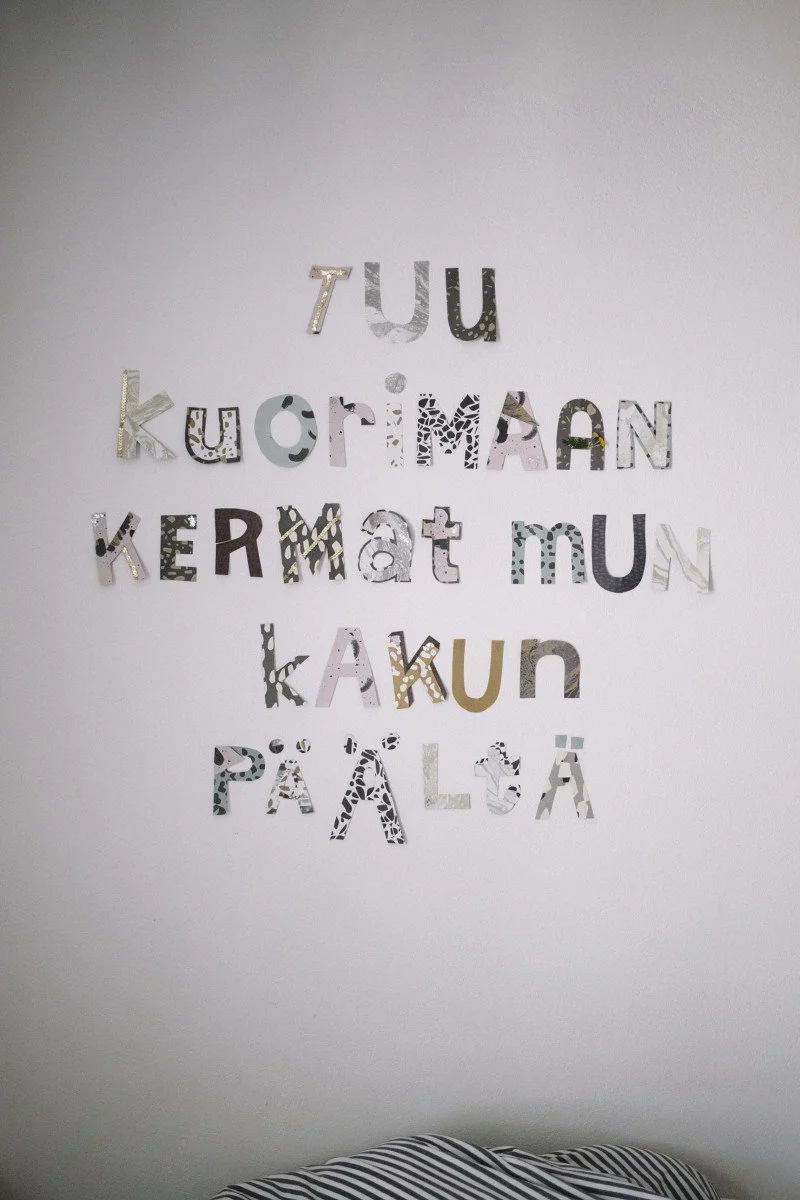 TUU
kuoriMAAN
KERMat mUN
kAKUn
PÄÄLtÄ